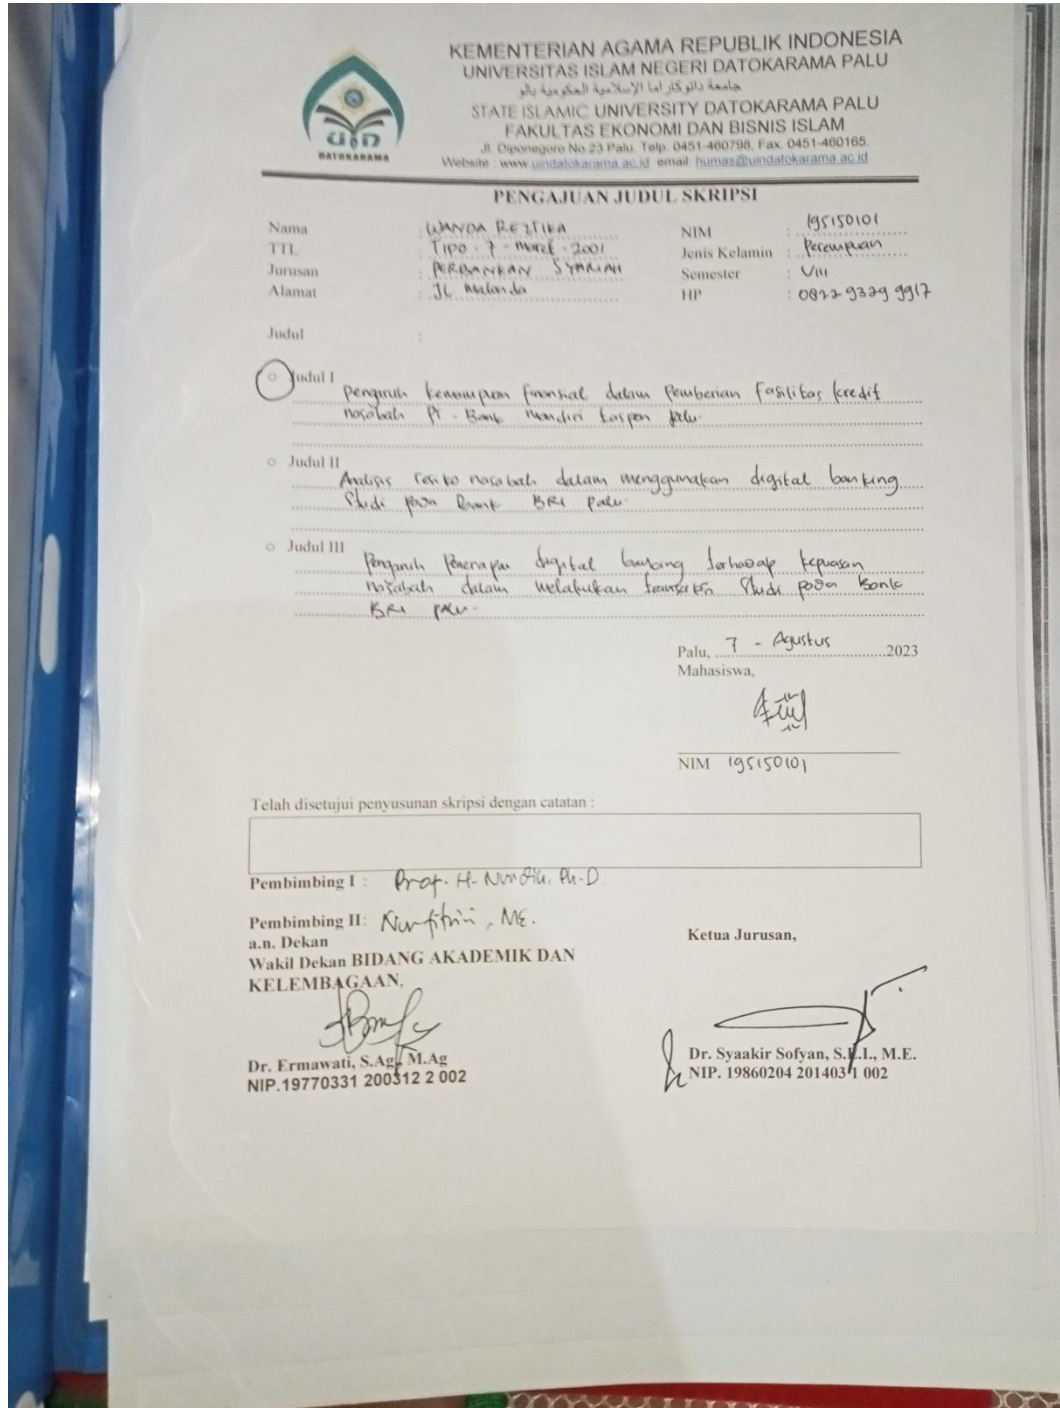 KEMENTERIAN AGAMA REPUBLIK INDONESIA
UNIVERSITAS ISLAM NEGERI DATOKARAMA PALU
جامعة داتوكاراما الإسلامية الحكومية بالو
STATE ISLAMIC UNIVERSITY DATOKARAMA PALU
FAKULTAS EKONOMI DAN BISNIS ISLAM
Jl. Diponegoro No.23 Palu. Telp. 0451-460798, Fax. 0451-460165.
Website : www.uindatokarama.ac.id email: humas@uindatokarama.ac.id
UIN
DATOKARAMA
PENGAJUAN JUDUL SKRIPSI
Nama : WANDA REZTIKA NIM : 195150101
TTL : TIPO . 7 - Maret - 2001 Jenis Kelamin : Perempuan
Jurusan : PERBANKAN SYARIAH Semester : VIII
Alamat : JL Malonda HP : 0822 9329 9917
Judul :
Judul I
Pengaruh kemampuan finansial dalam Pemberian Fasilitas kredit
nasabah PT. Bank mandiri taspen palu.
Judul II
Analisis resiko nasabah dalam menggunakan digital banking
Studi pada bank BRI palu.
Judul III
Pengaruh Penerapan digital banking terhadap kepuasan
nasabah dalam melakukan transaksi Studi pada Bank
BRI palu.
Palu, 7 - Agustus 2023
Mahasiswa,
NIM 195150101
Telah disetujui penyusunan skripsi dengan catatan :
Pembimbing I : Prof. H. Nurdin, Ph.D
Pembimbing II: Nurfitriani, ME.
a.n. Dekan
Wakil Dekan BIDANG AKADEMIK DAN
KELEMBAGAAN,
Ketua Jurusan,
Dr. Ermawati, S.Ag., M.Ag
NIP.19770331 200312 2 002
Dr. Syaakir Sofyan, S.E.I., M.E.
NIP. 19860204 201403 1 002